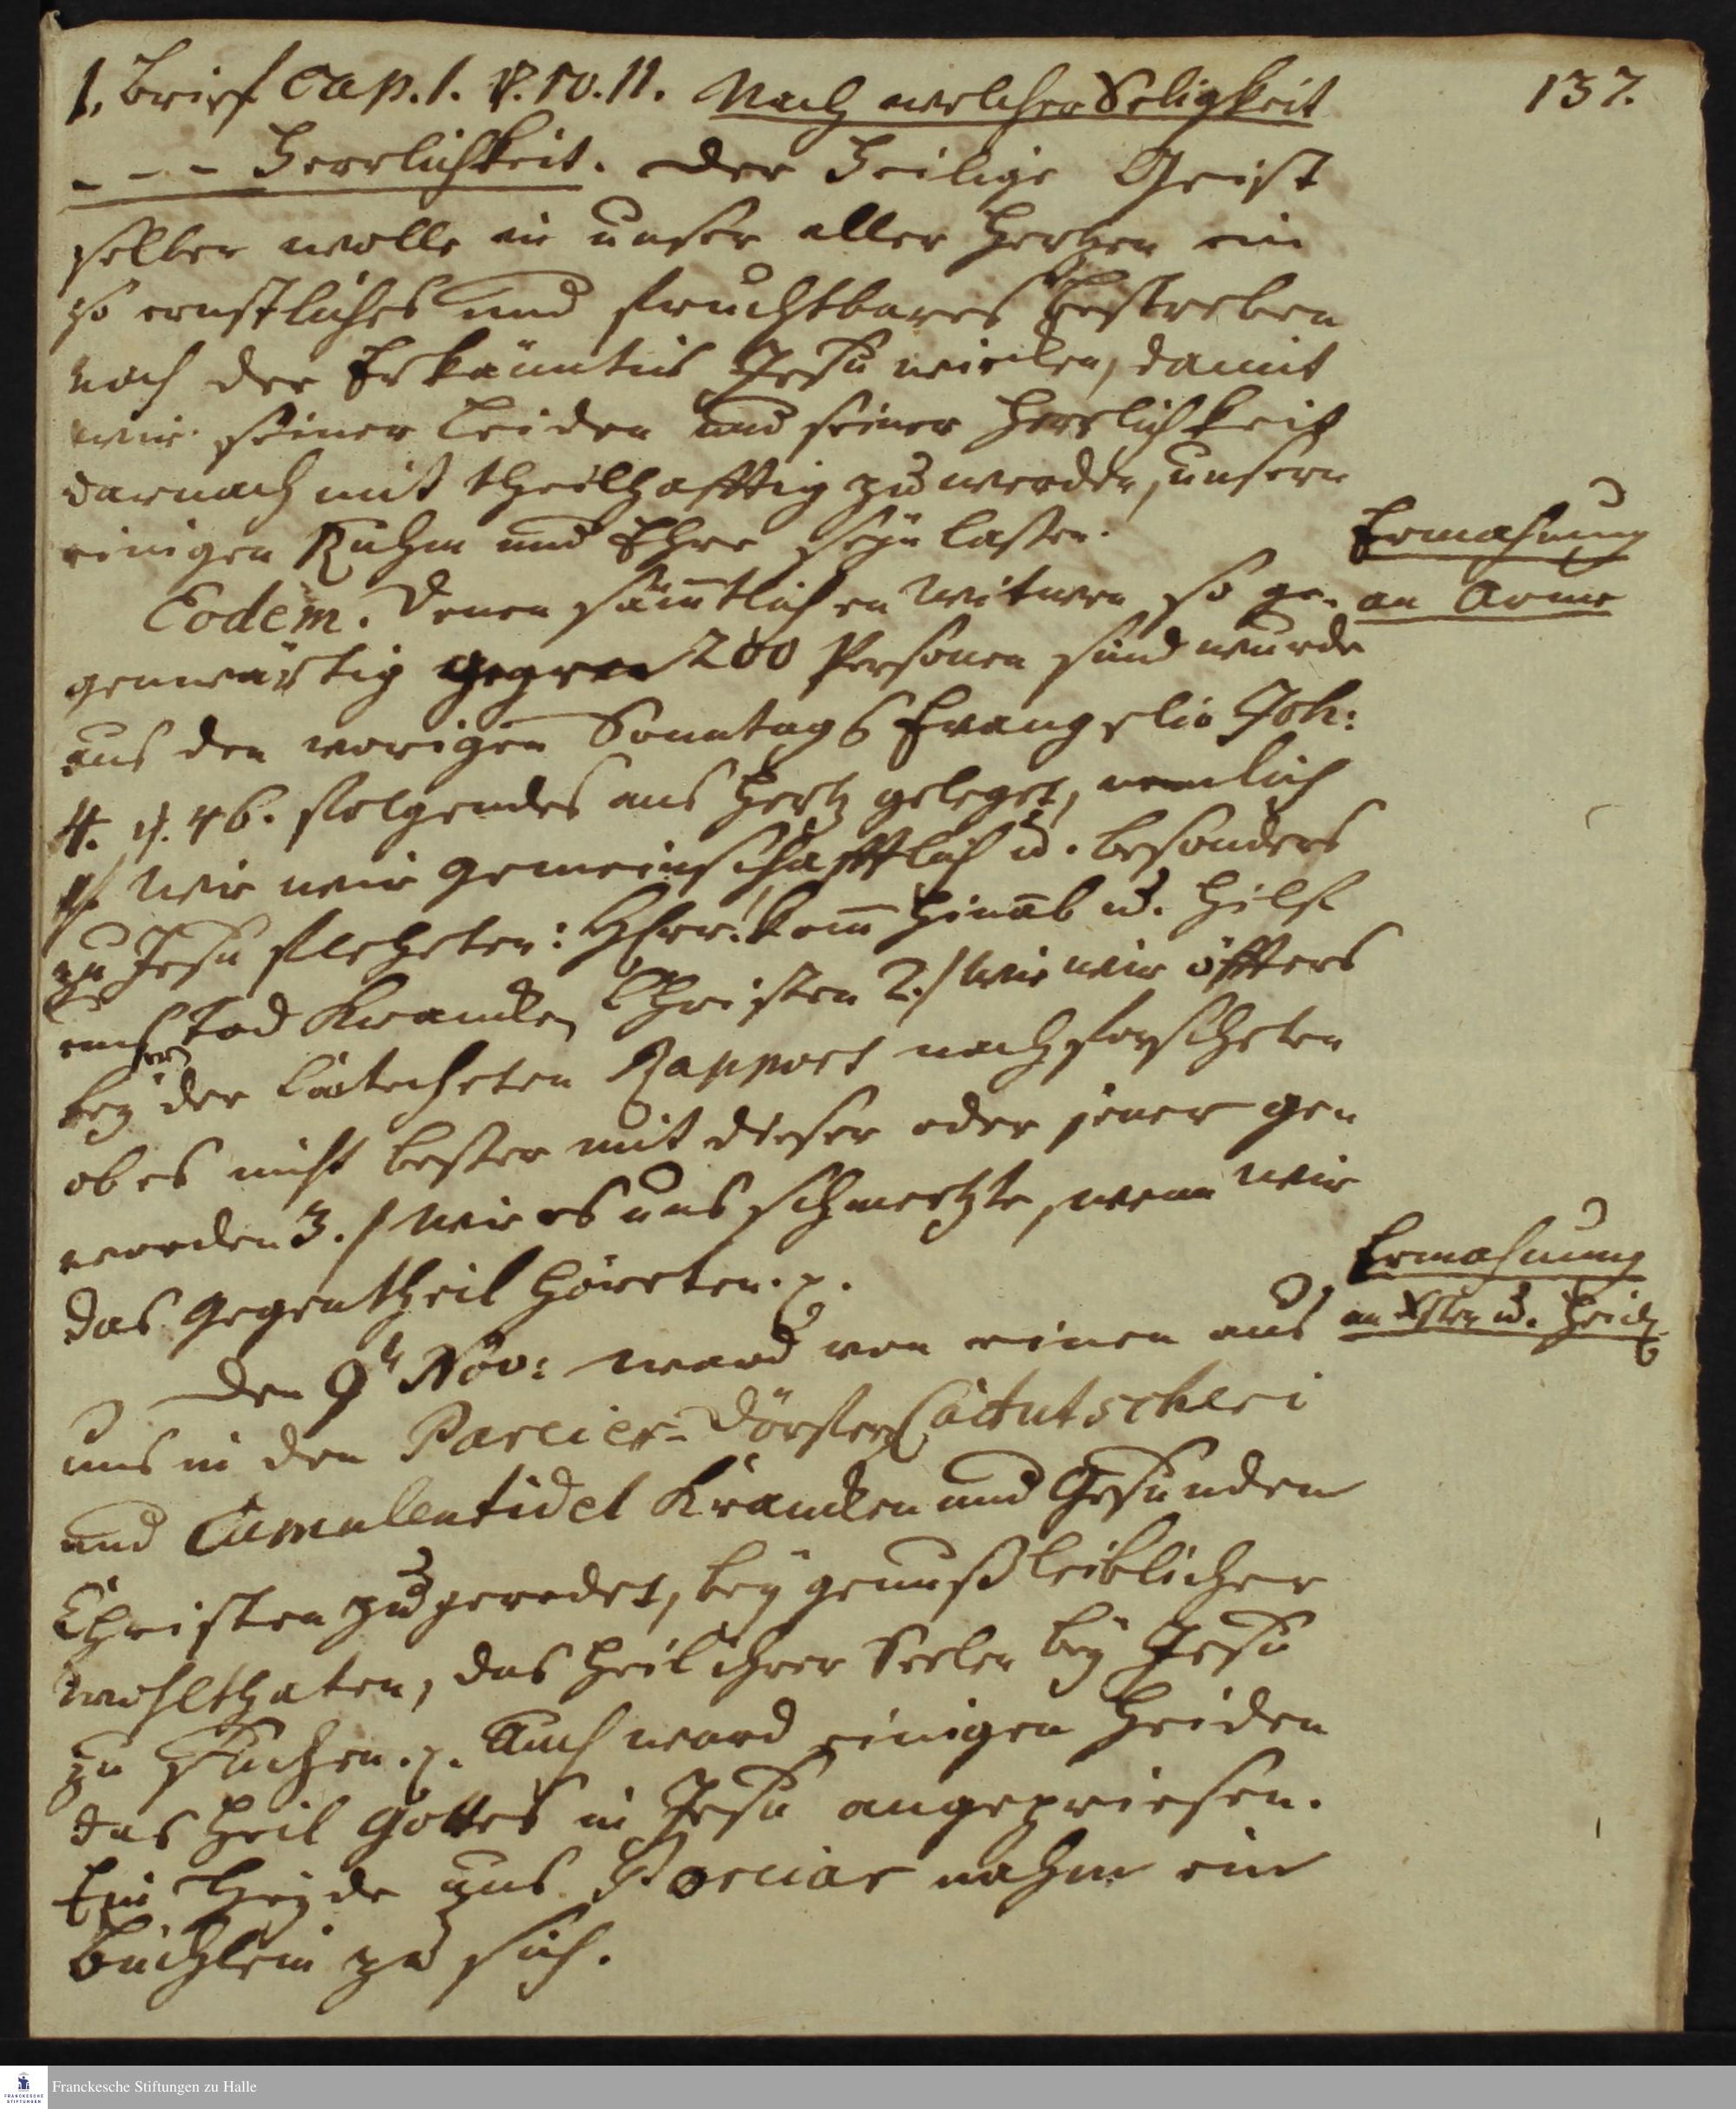 137.
1. Brief Cap. 1. v. 10. 11. Nach welcher Seligkeit
- - - Herrlichkeit. Der Heilige Geist
selber wolle in unser aller Hertzen ein
so ernstliches und fruchtbares Bestreben
nach der Erkäntnis Jesu wircken, damit
wir seiner Leiden und seiner Herrlichkeit
darnach mit theilhafftig zu werden, unsern
einigen Ruhm und Ehre seyn lassen.
Ermahnung
an Arme
Eodem. Denen sämtlichen Witwen so ge-
genwärtig gegen 200 Personen sind wurde
aus den vorigen Sonntags Evangelio Joh:
4. v. 46. folgendes ans Hertz geleget, nemlich
1./ Wie wir gemeinschafftlich u. besonders
zu Jesu fleheten: HErr! kom hinab u. hilf
unsern Tod Krancken Christen 2./ Wie wir öffters
bey der Catecheten Rapport nachforscheten
ob es nicht besser mit dieser oder jener ge
worden 3./ Wie es uns schmertzte, wenn wir
das Gegentheil höreten. p.
Ermahnung
an Xsten u. Heid.
Den 9t Nov: ward von einen aus
uns in den Pareier-Dörfern Cattutscheri
und Cumulentidel Krancken und Gesunden
Christen zu geredet, bey genuß leiblicher
Wohlthaten, das Heil ihrer Seelen bey Jesu
zu suchen. p. Auch ward einigen Heiden
das Heil Gottes in Jesu angepriesen.
Ein Heyde aus Poreiar nahm ein
Büchlein zu sich.
Franckesche Stiftungen zu Halle
FRANCKESCHE
STIFTUNGEN